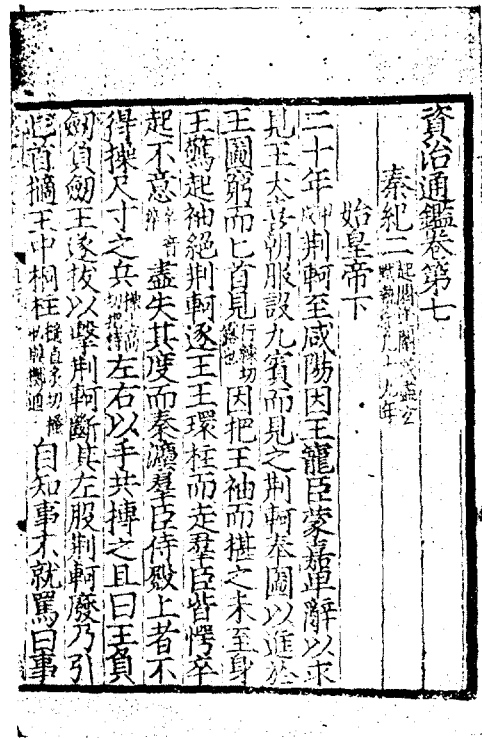 資治通鑑卷第七
秦紀二
始皇帝下
二十年荆軻至咸陽因王寵臣蒙嘉卑辭以求
見王大喜朝服設九賓而見之荆軻奉圖以進於
王圖窮而匕首見因把王袖而椹之未至身
王驚起袖絕荆軻逐王王環柱而走羣臣皆愕卒
起不意盡失其度而秦灋羣臣侍殿上者不
得操尺寸之兵左右以手共搏之且曰王負
劒負劒王遂拔以擊荆軻斷其左股荆軻廢乃引
匕首擿王中桐柱自知事不就罵曰事